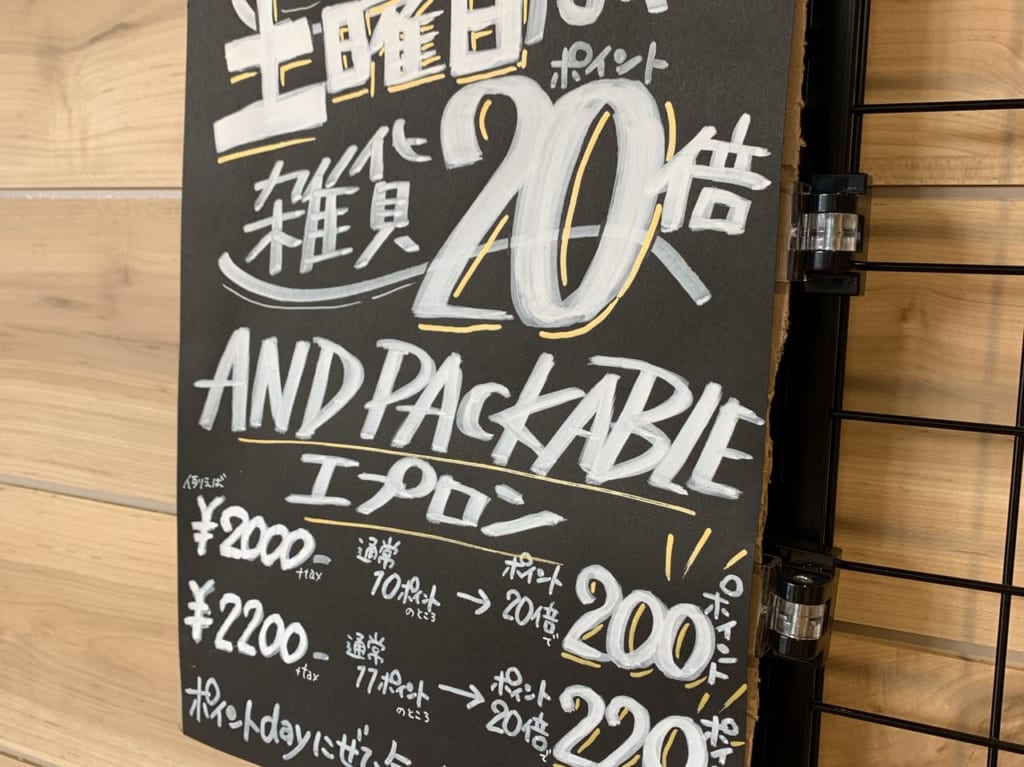 土曜日は
ポイント
雑貨 20倍
AND PACKABLE
エプロン
例えば
¥2000- +tax 通常 10ポイント のところ → ポイント 20倍で 200ポイント
¥2200- +tax 通常 11ポイント のところ → ポイント 20倍で 220ポイ
ポイントdayにぜひ